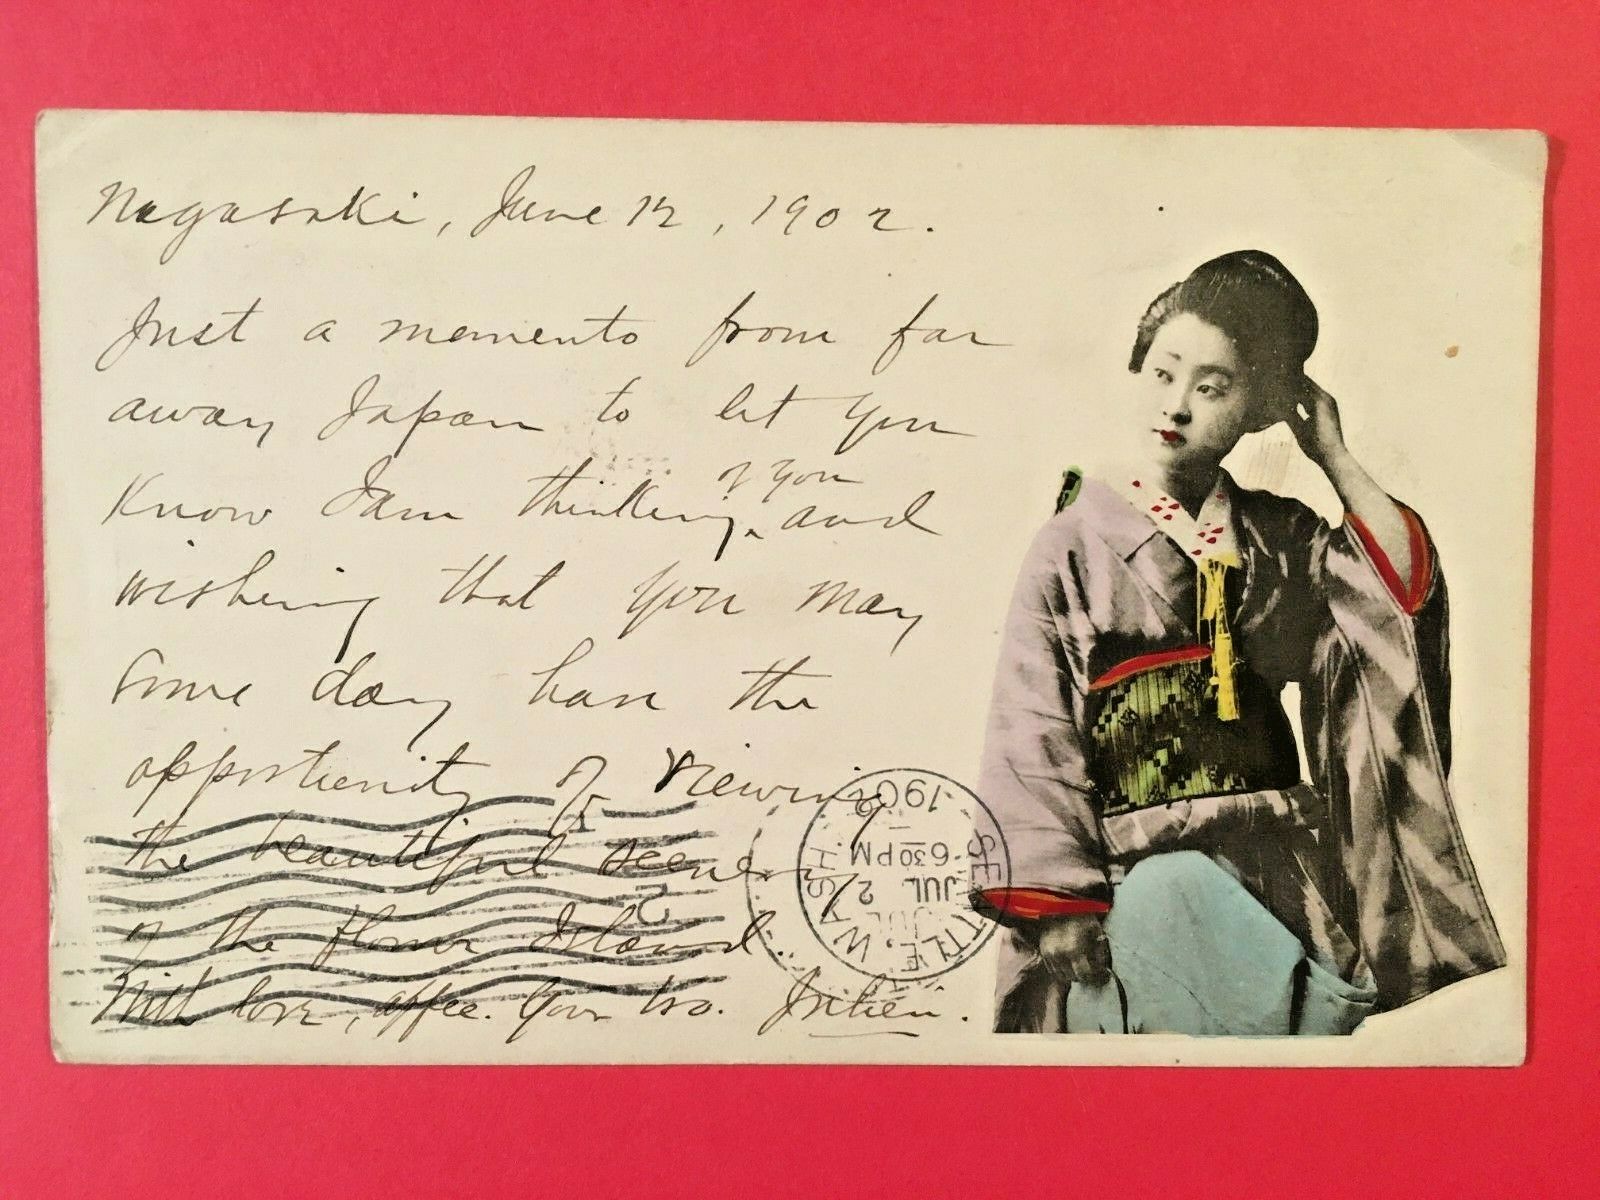 Nagasaki, June 12, 1902.
Just a memento from far
away Japan to let you
Know I am thinking of you and
wishing that you may
Some day have the
opportunity of viewing
the beautiful scenery
of the flower Island.
With love, affec. Your bro.
SEATTLE, WASH
JUL 2
6 30 PM
1902